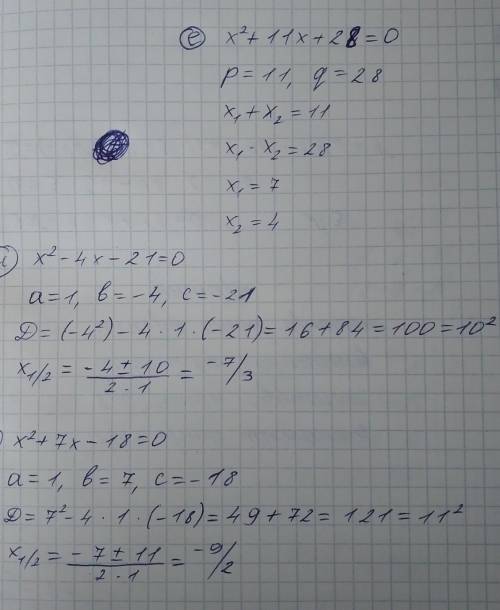 е) x²+11x+28=0
p=11, q=28
x₁+x₂=11
x₁·x₂=28
x₁=7
x₂=4
x²-4x-21=0
a=1, b=-4, c=-21
D=(-4²)-4·1·(-21)=16+84=100=10²
x₁/₂=(-4±10)/(2·1)=-7/3
x²+7x-18=0
a=1, b=7, c=-18
D=7²-4·1·(-18)=49+72=121=11²
x₁/₂=(-7±11)/(2·1)=-9/2